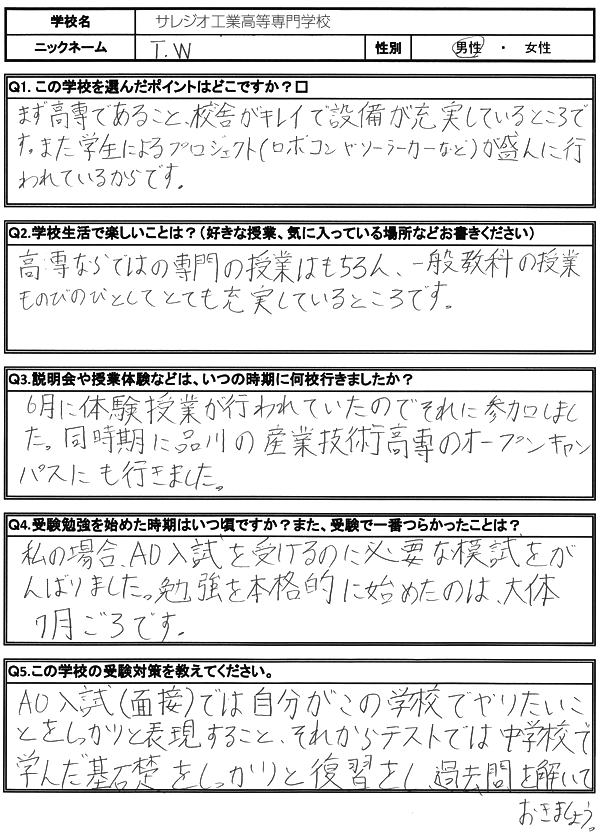 学校名 サレジオ工業高等専門学校
ニックネーム T.W 性別 男性 ・ 女性
Q1. この学校を選んだポイントはどこですか？□
まず高専であること、校舎がキレイで設備が充実しているところで
す。また学生によるプロジェクト(ロボコンやソーラーカーなど)が盛んに行
われているからです。
Q2.学校生活で楽しいことは？（好きな授業、気に入っている場所などお書きください）
高専ならではの専門の授業はもちろん、一般教科の授業
ものびのびとしてとても充実しているところです。
Q3.説明会や授業体験などは、いつの時期に何校行きましたか？
6月に体験授業が行われていたのでそれに参加しまし
た。同時期に品川の産業技術高専のオープンキャン
パスにも行きました。
Q4.受験勉強を始めた時期はいつ頃ですか？また、受験で一番つらかったことは？
私の場合、AO入試を受けるのに必要な模試をが
んばりました。勉強を本格的に始めたのは、大体
7月ごろです。
Q5.この学校の受験対策を教えてください。
AO入試(面接)では自分がこの学校でやりたいこ
とをしっかりと表現すること、それからテストでは中学校で
学んだ基礎をしっかりと復習をし、過去問を解いて
おきましょう。